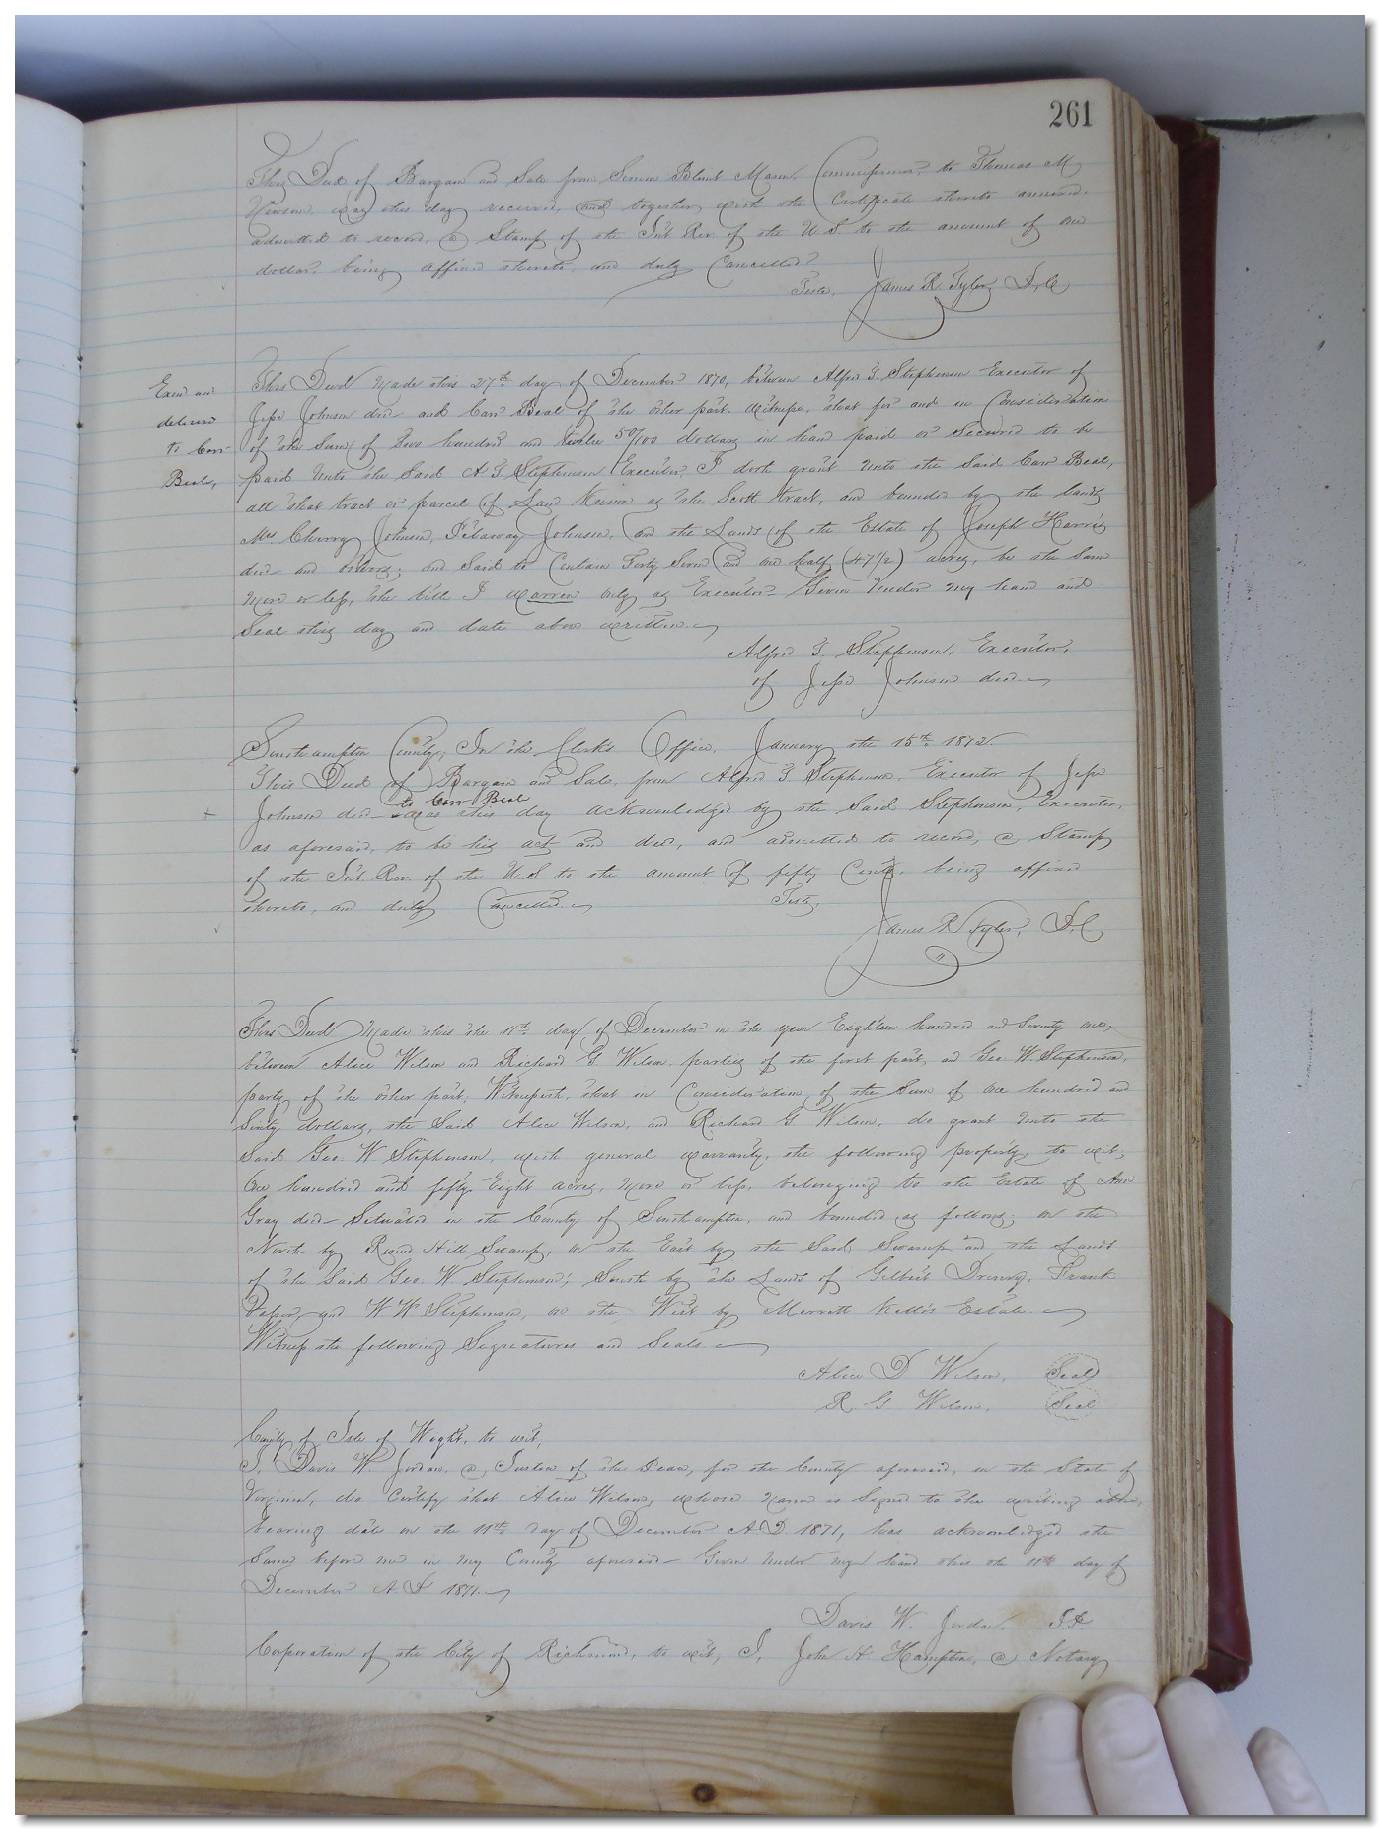 261
This Deed of Bargain and Sale from Simon Blunt Mason Commissioner to Thomas M
was this day received, and together with the Certificate thereto annexed
admitted to record, a Stamp of the Int Rev of the U S to the amount of one
dollar being affixed thereto, and duly Cancelled
Teste, James R Tyler D,C
Exd and
deliverd
to Carr
Beale,
This Deed made this 27th day of December 1870, between Alfred T. Stephenson Executor of
Jesse Johnson decd and Carr Beal of the other part. Witnesse, that for and in Consideration
of the Sum of two hundred and twelve 50/100 dollars in hand paid or Secured to be
paid unto the Said A T Stephenson Executor, I doth grant unto the Said Carr Beal,
all that tract or parcel of Land Known as the Scott tract, and bounded by the lands
Mrs Cherry Johnson, Johnson, on the Lands of the Estate of Joseph Harris
decd and others; and Said to Contain Forty Seven and one half (47 1/2) acres, be the Same
more or less, the title I warren only as Executor Given under my hand and
Seal this day and date above written.
Alfred T. Stephenson, Executor,
of Jesse Johnson decd
Southampton County; In the Clerk's Office, January the 15th 1872.
This Deed of Bargain and Sale, from Alfred T Stephenson, Executor of Jesse
Johnson decd to Carr Beal was this day acknowledged by the Said Stephenson, Executor,
as aforesaid, to be his act and deed, and admitted to record, a Stamp
of the Int. Rev. of the U.S to the amount of fifty Cents, being affixed
thereto, and duly Cancelled.
Teste,
James R Tyler, D.C
This Deed Made this the 11th day of December in the year Eighteen hundred and Seventy one,
between Alice Wilson and Richard G Wilson, parties of the first part, and Geo. W. Stephenson,
party of the other part; Witnesseth, that in Consideration of the Sum of one hundred and
Sixty dollars, the Said Alice Wilson, and Richard G Wilson, do grant unto the
Said Geo. W Stephenson, with general warranty, the following property, to wit;
One hundred and fifty Eight acres, more or less, belonging to the Estate of Ann
Gray decd Situated in the County of Southampton, and bounded as follows; on the
North by Round Hill Swamp, on the East by the Said Swamp and the Lands
of the Said Geo. W. Stephenson; South by the Lands of Gilbert Drewry, Frank
and W W Stephenson, on the West by Merrett Estate.
Witness the following Signatures and Seals
Alice D Wilson, Seal
R. G Wilson, Seal
County of Isle of Wight, to wit,
I, Davis W. Jordan, a, Justice of the Peace, for the County aforesaid, in the State of
Virginia, do Certify that Alice Wilson, whose name is Signed to the writing above,
bearing date on the 11th day of December A.D. 1871, has acknowledged the
Same before me in my County aforesaid Given under my hand this the 11th day of
December A D 1871.
Davis W. Jordan. J P
Corporation of the City of Richmond, to wit, I, John H Hampton, a Notary